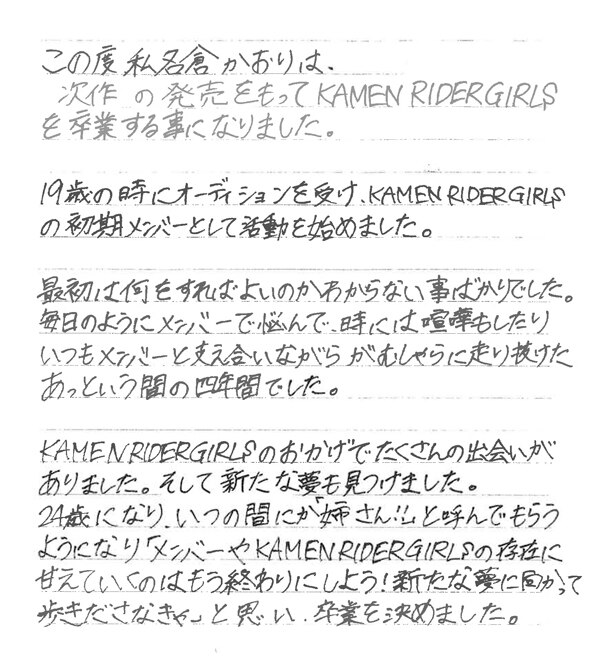 この度 私名倉かおりは、
次作 の 発売をもってKAMEN RIDER GIRLS
を卒業する事になりました。
19歳の時にオーディションを受け、KAMEN RIDER GIRLS
の初期メンバーとして活動を始めました。
最初は何をすればよいのかわからない事ばかりでした。
毎日のようにメンバーで悩んで、時には喧嘩もしたり
いつもメンバーと支え合いながら がむしゃらに走り抜けた
あっという間の四年間でした。
KAMEN RIDER GIRLSのおかげでたくさんの出会いが
ありました。そして新たな夢も見つけました。
24歳になり、いつの間にか「姉さん!!」と呼んでもらう
ようになり「メンバーやKAMEN RIDER GIRLSの存在に
甘えていくのはもう終わりにしよう!新たな夢に向かって
歩きださなきゃ」と思い、卒業を決めました。